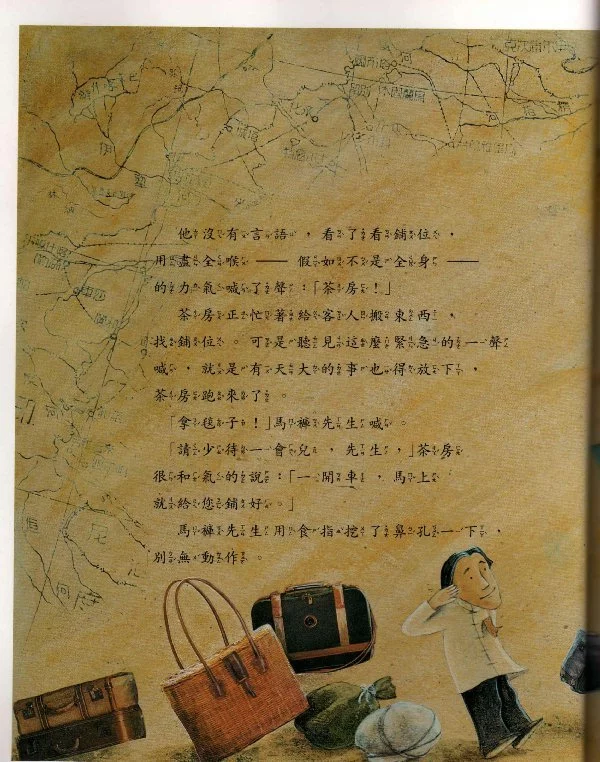 他沒有言語，看了看鋪位，
用盡全喉——假如不是全身——
的力氣喊了聲：「茶房！」
茶房正忙著給客人搬東西，
找鋪位。可是聽見這麼緊急的一聲
喊，就是有天大的事也得放下，
茶房跑來了。
「拿毯子！」馬褲先生喊。
「請少待一會兒，先生，」茶房
很和氣的說：「一開車，馬上
就給您鋪好。」
馬褲先生用食指挖了鼻孔一下，
別無動作。